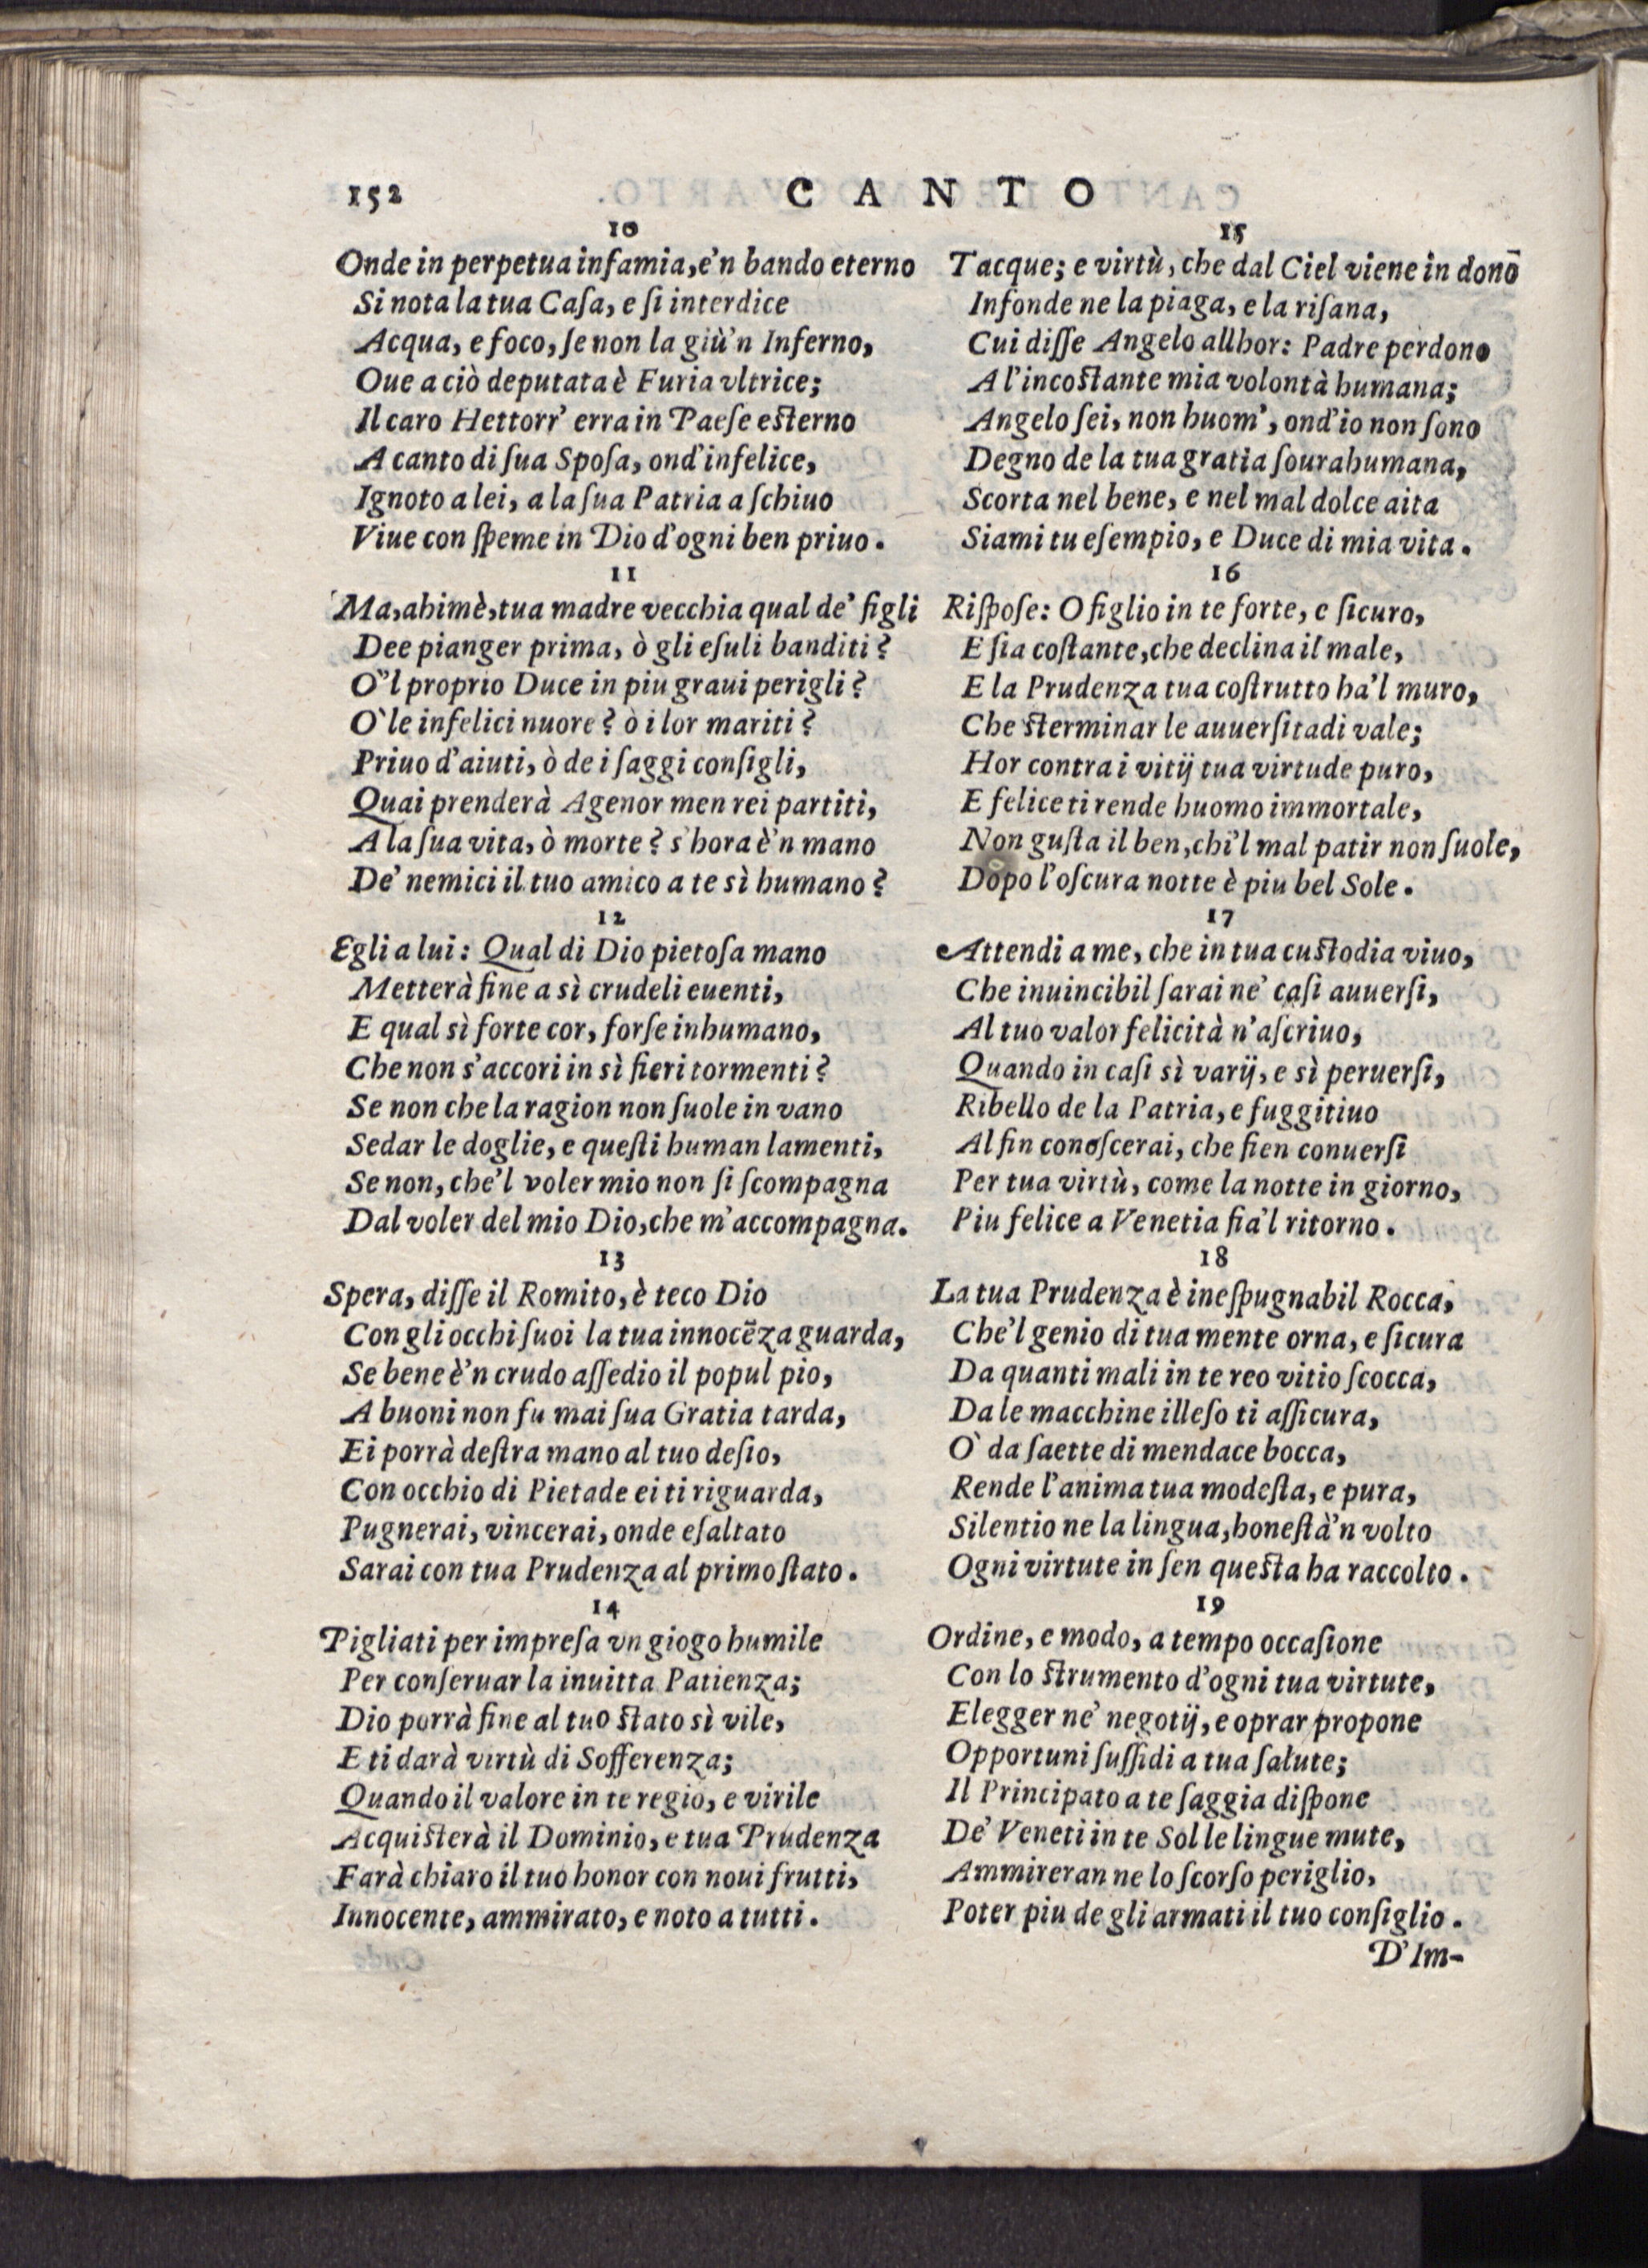 152 CANTO
10
Onde in perpetua infamia, e'n bando eterno
Si nota la tua Caſa, e ſi interdice
Acqua, e foco, ſe non la giù'n Inferno,
Oue a ciò deputata è Furia vltrice;
Il caro Hettorr' erra in Paeſe eſterno
A canto di ſua Spoſa, ond'infelice,
Ignoto a lei, a la ſua Patria a ſchiuo
Viue con ſpeme in Dio d'ogni ben priuo.
11
Ma, ahimè, tua madre vecchia qual de' figli
Dee pianger prima, ò gli eſuli banditi?
O''l proprio Duce in piu graui perigli?
O` le infelici nuore? ò i lor mariti?
Priuo d'aiuti, ò de i ſaggi conſigli,
Quai prenderà Agenor men rei partiti,
A la ſua vita, ò morte? s'hora è'n mano
De' nemici il tuo amico a te sì humano?
12
Egli a lui: Qual di Dio pietoſa mano
Metterà fine a sì crudeli euenti,
E qual sì forte cor, forſe inhumano,
Che non s'accori in sì fieri tormenti?
Se non che la ragion non ſuole in vano
Sedar le doglie, e queſti human lamenti,
Se non, che'l voler mio non ſi ſcompagna
Dal voler del mio Dio, che m'accompagna.
13
Spera, diſſe il Romito, è teco Dio
Con gli occhi ſuoi la tua innocẽza guarda,
Se bene è'n crudo aſſedio il popul pio,
A buoni non fu mai ſua Gratia tarda,
Ei porrà deſtra mano al tuo deſio,
Con occhio di Pietade ei ti riguarda,
Pugnerai, vincerai, onde eſaltato
Sarai con tua Prudenza al primo ſtato.
14
Pigliati per impreſa vn giogo humile
Per conſeruar la inuitta Patienza;
Dio porrà fine al tuo ſtato sì vile,
E ti darà virtù di Sofferenza;
Quando il valore in te regio, e virile
Acquiſterà il Dominio, e tua Prudenza
Farà chiaro il tuo honor con noui frutti,
Innocente, ammirato, e noto a tutti.
15
Tacque; e virtù, che dal Ciel viene in donō
Infonde ne la piaga, e la riſana,
Cui diſſe Angelo allhor: Padre perdono
A l'incoſtante mia volontà humana;
Angelo ſei, non huom', ond'io non ſono
Degno de la tua gratia ſourahumana,
Scorta nel bene, e nel mal dolce aita
Siami tu eſempio, e Duce di mia vita.
16
Riſpoſe: O figlio in te forte, e ſicuro,
E ſia coſtante, che declina il male,
E la Prudenza tua coſtrutto ha'l muro,
Che ſterminar le auuerſitadi vale;
Hor contra i vitij tua virtude puro,
E felice ti rende huomo immortale,
Non guſta il ben, chi'l mal patir non ſuole,
Dopo l'oſcura notte è piu bel Sole.
17
Attendi a me, che in tua cuſtodia viuo,
Che inuincibil ſarai ne' caſi auuerſi,
Al tuo valor felicità n'aſcriuo,
Quando in caſi sì varij, e sì peruerſi,
Ribello de la Patria, e fuggitiuo
Al fin conoſcerai, che fien conuerſi
Per tua virtù, come la notte in giorno,
Piu felice a Venetia fia'l ritorno.
18
La tua Prudenza è ineſpugnabil Rocca,
Che'l genio di tua mente orna, e ſicura
Da quanti mali in te reo vitio ſcocca,
Da le macchine illeſo ti aſſicura,
O` da ſaette di mendace bocca,
Rende l'anima tua modeſta, e pura,
Silentio ne la lingua, honeſtà'n volto
Ogni virtute in ſen queſta ha raccolto.
19
Ordine, e modo, a tempo occaſione
Con lo ſtrumento d'ogni tua virtute,
Elegger ne' negotij, e oprar propone
Opportuni ſuſſidi a tua ſalute;
Il Principato a te ſaggia diſpone
De' Veneti in te Sol le lingue mute,
Ammireran ne lo ſcorſo periglio,
Poter piu de gli armati il tuo conſiglio.
D'Im-